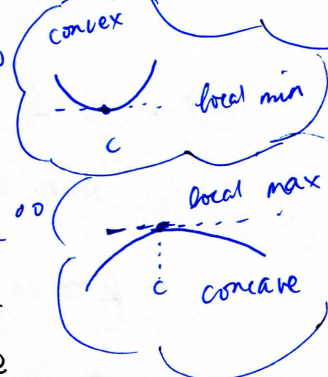 convex
local min
c
local max
c concave